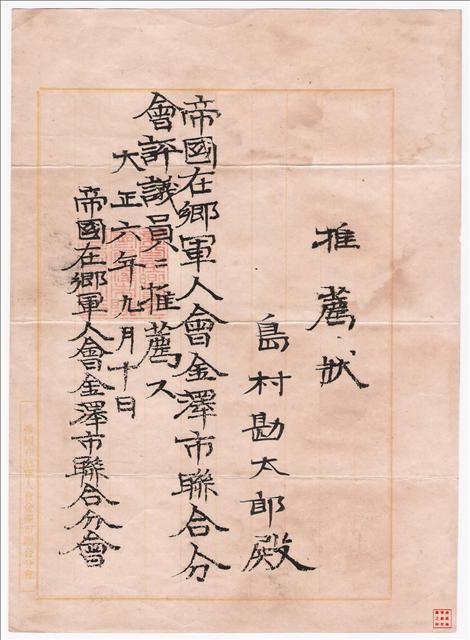 推薦状
島村勘太郎殿
帝國在郷軍人會金澤市聯合分
會評議員ニ推薦ス
大正六年九月十日
帝國在郷軍人會金澤市聯合分會